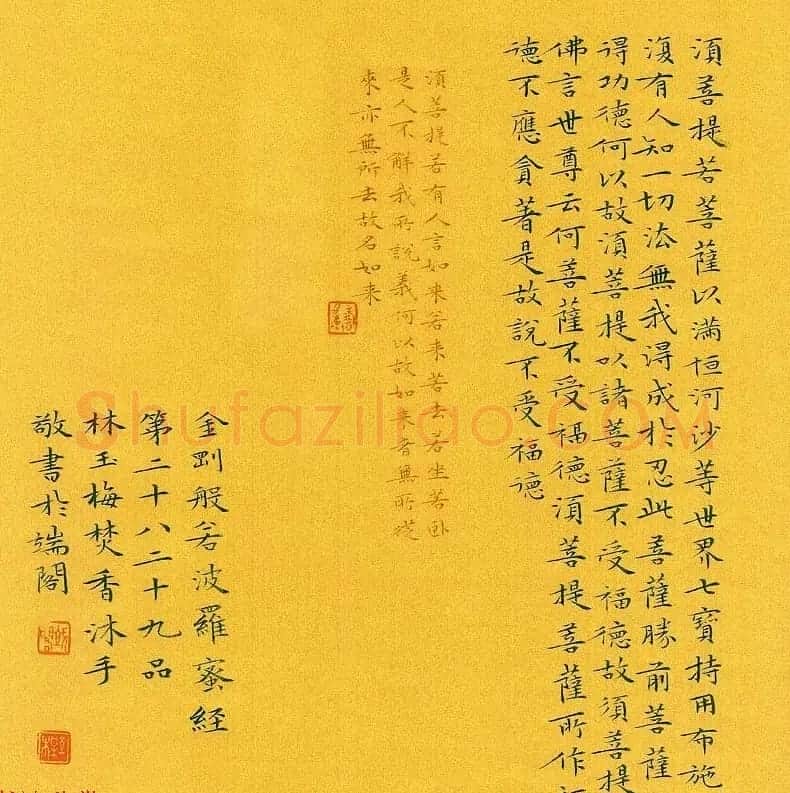 須菩提若菩薩以滿恒河沙等世界七寶持用布施
復有人知一切法無我得成於忍此菩薩勝前菩薩
得功德何以故須菩提以諸菩薩不受福德故須菩提
佛言世尊云何菩薩不受福德須菩提菩薩所作
德不應貪著是故說不受福德
須菩提若有人言如來若來若去若坐若臥
是人不解我所說義何以故如來者無所從
來亦無所去故名如來
金剛般若波羅蜜經
第二十八二十九品
林玉梅焚香沐手
敬書於端閣
Shufaziliao.COM